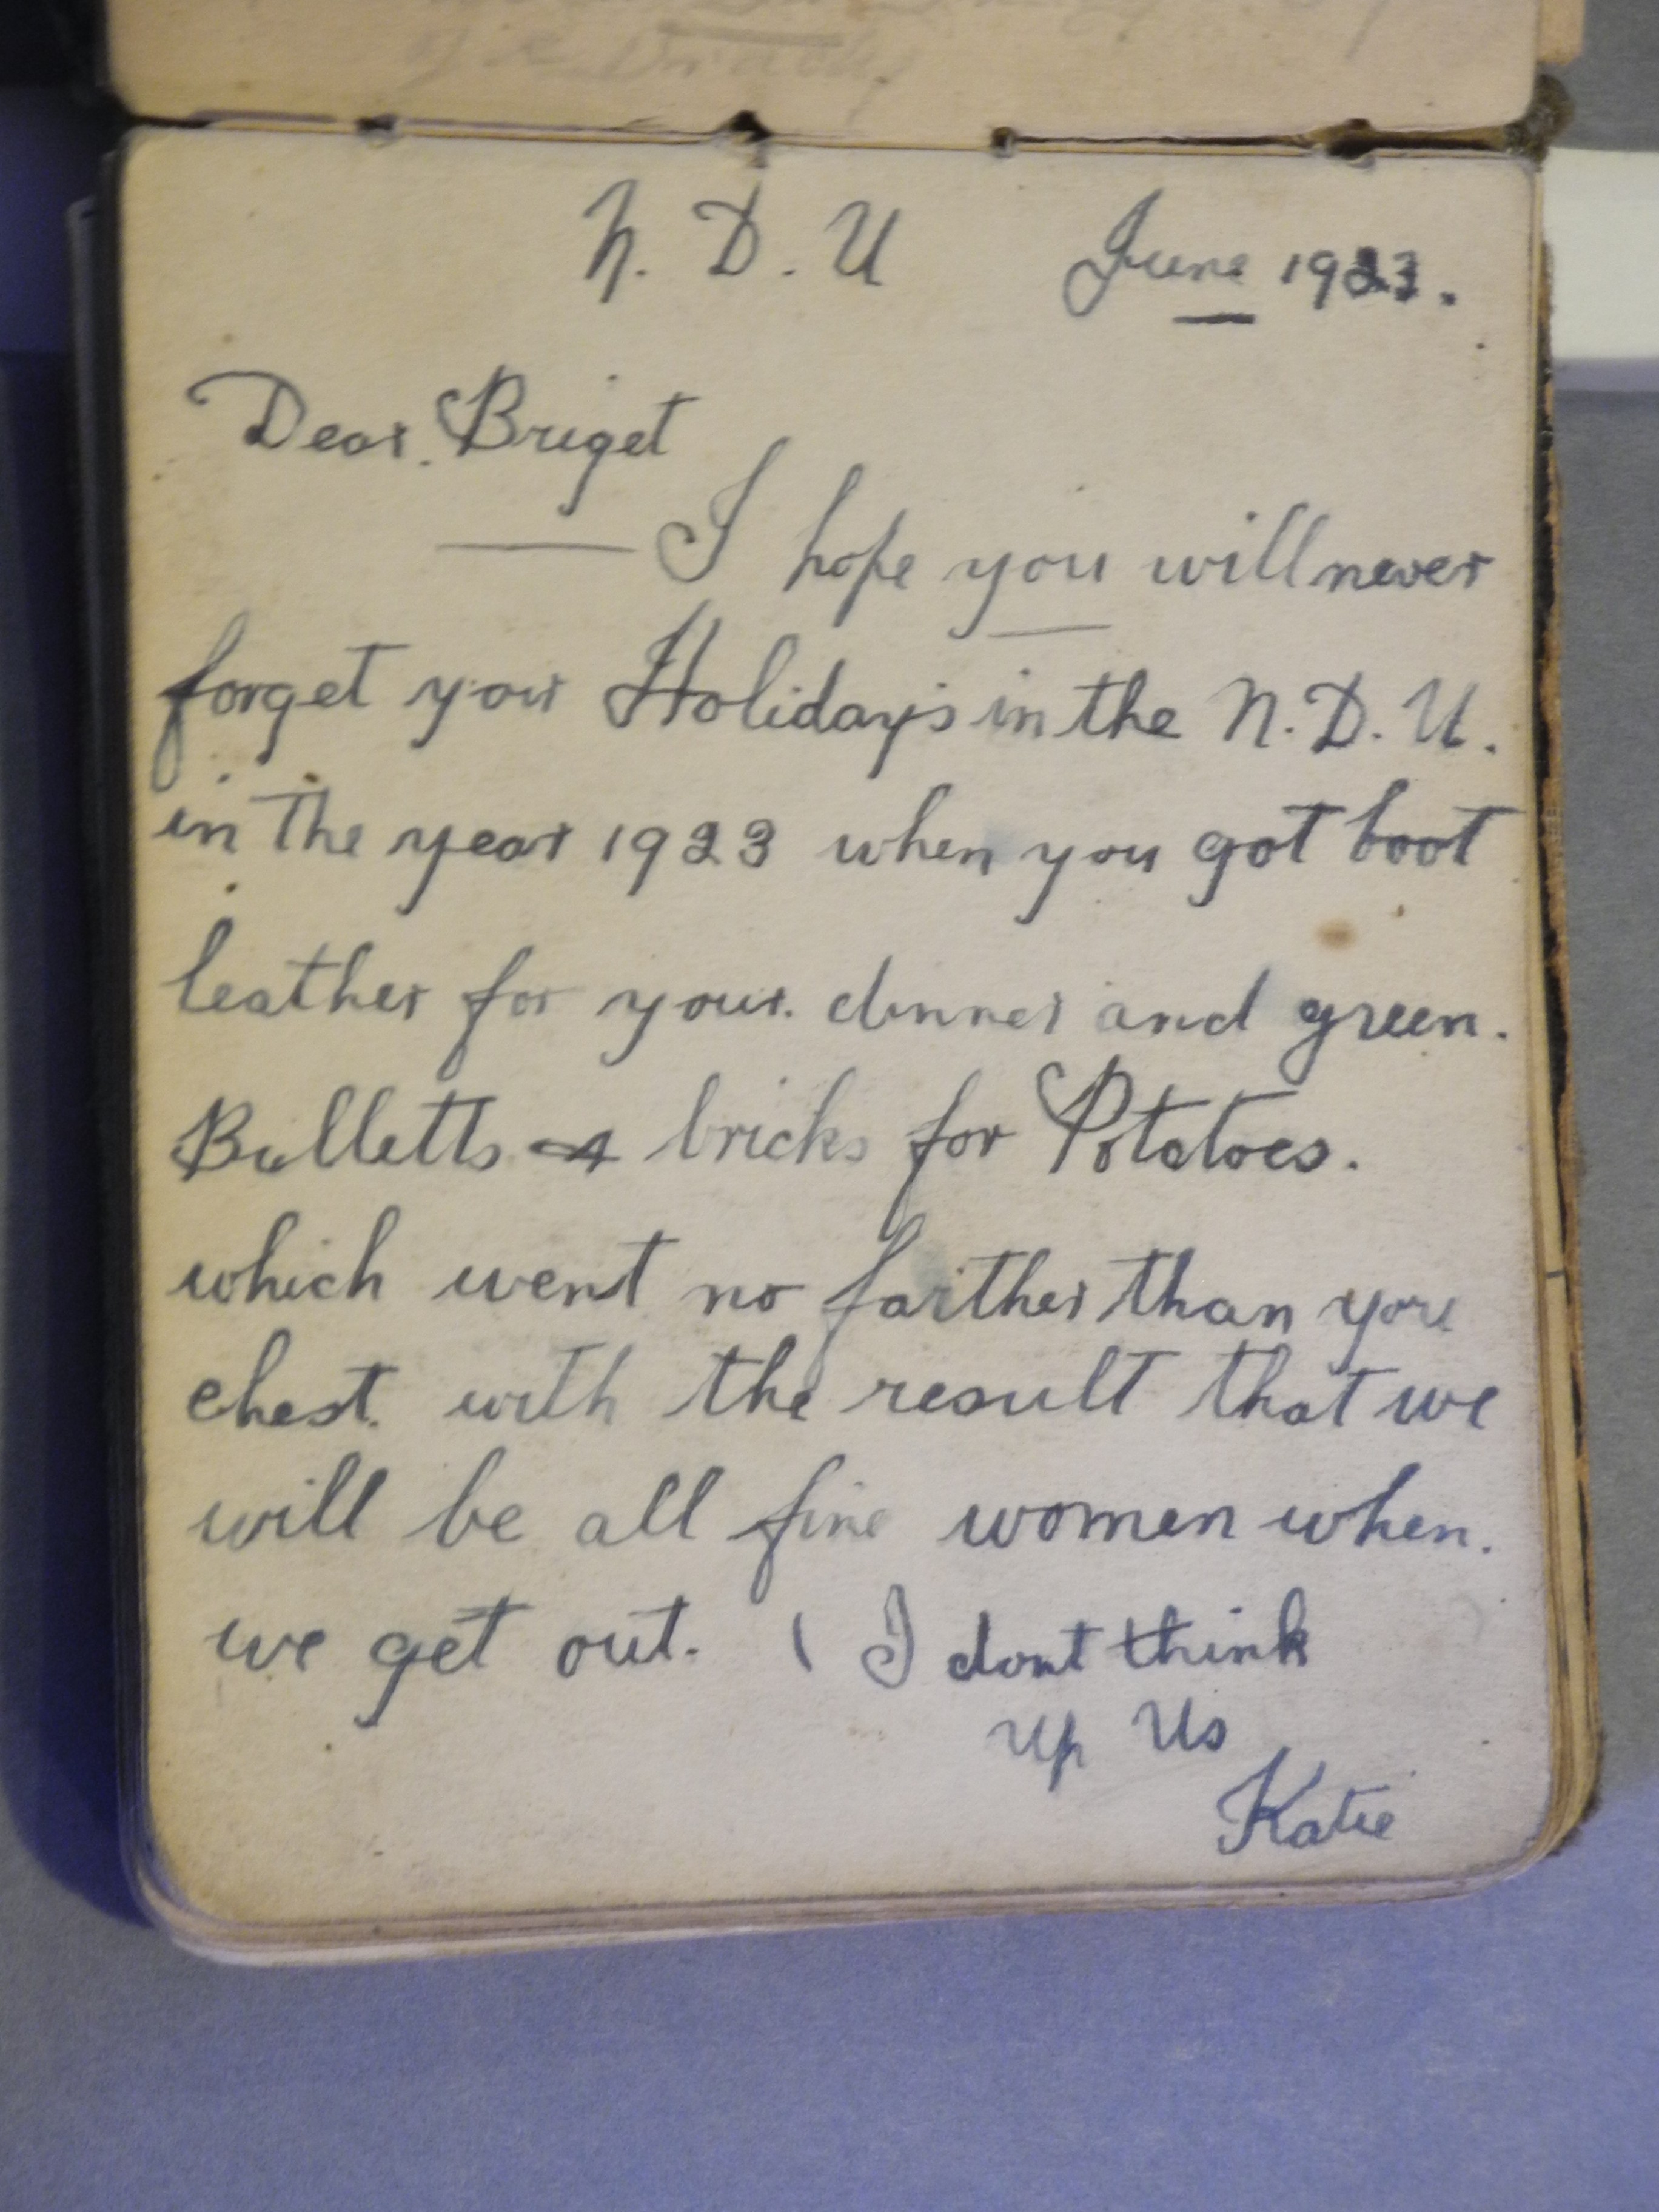 N. D. U June 1923.
Dear. Briget
I hope you will never
forget your Holiday's in the N. D. U.
in The year 1923 when you got boot
leather for your. dinner and green.
Bulletts & bricks for Potatoes.
which went no farther than your
chest. with the result that we
will be all fine women when.
we get out. ( I dont think
up Us
Katie